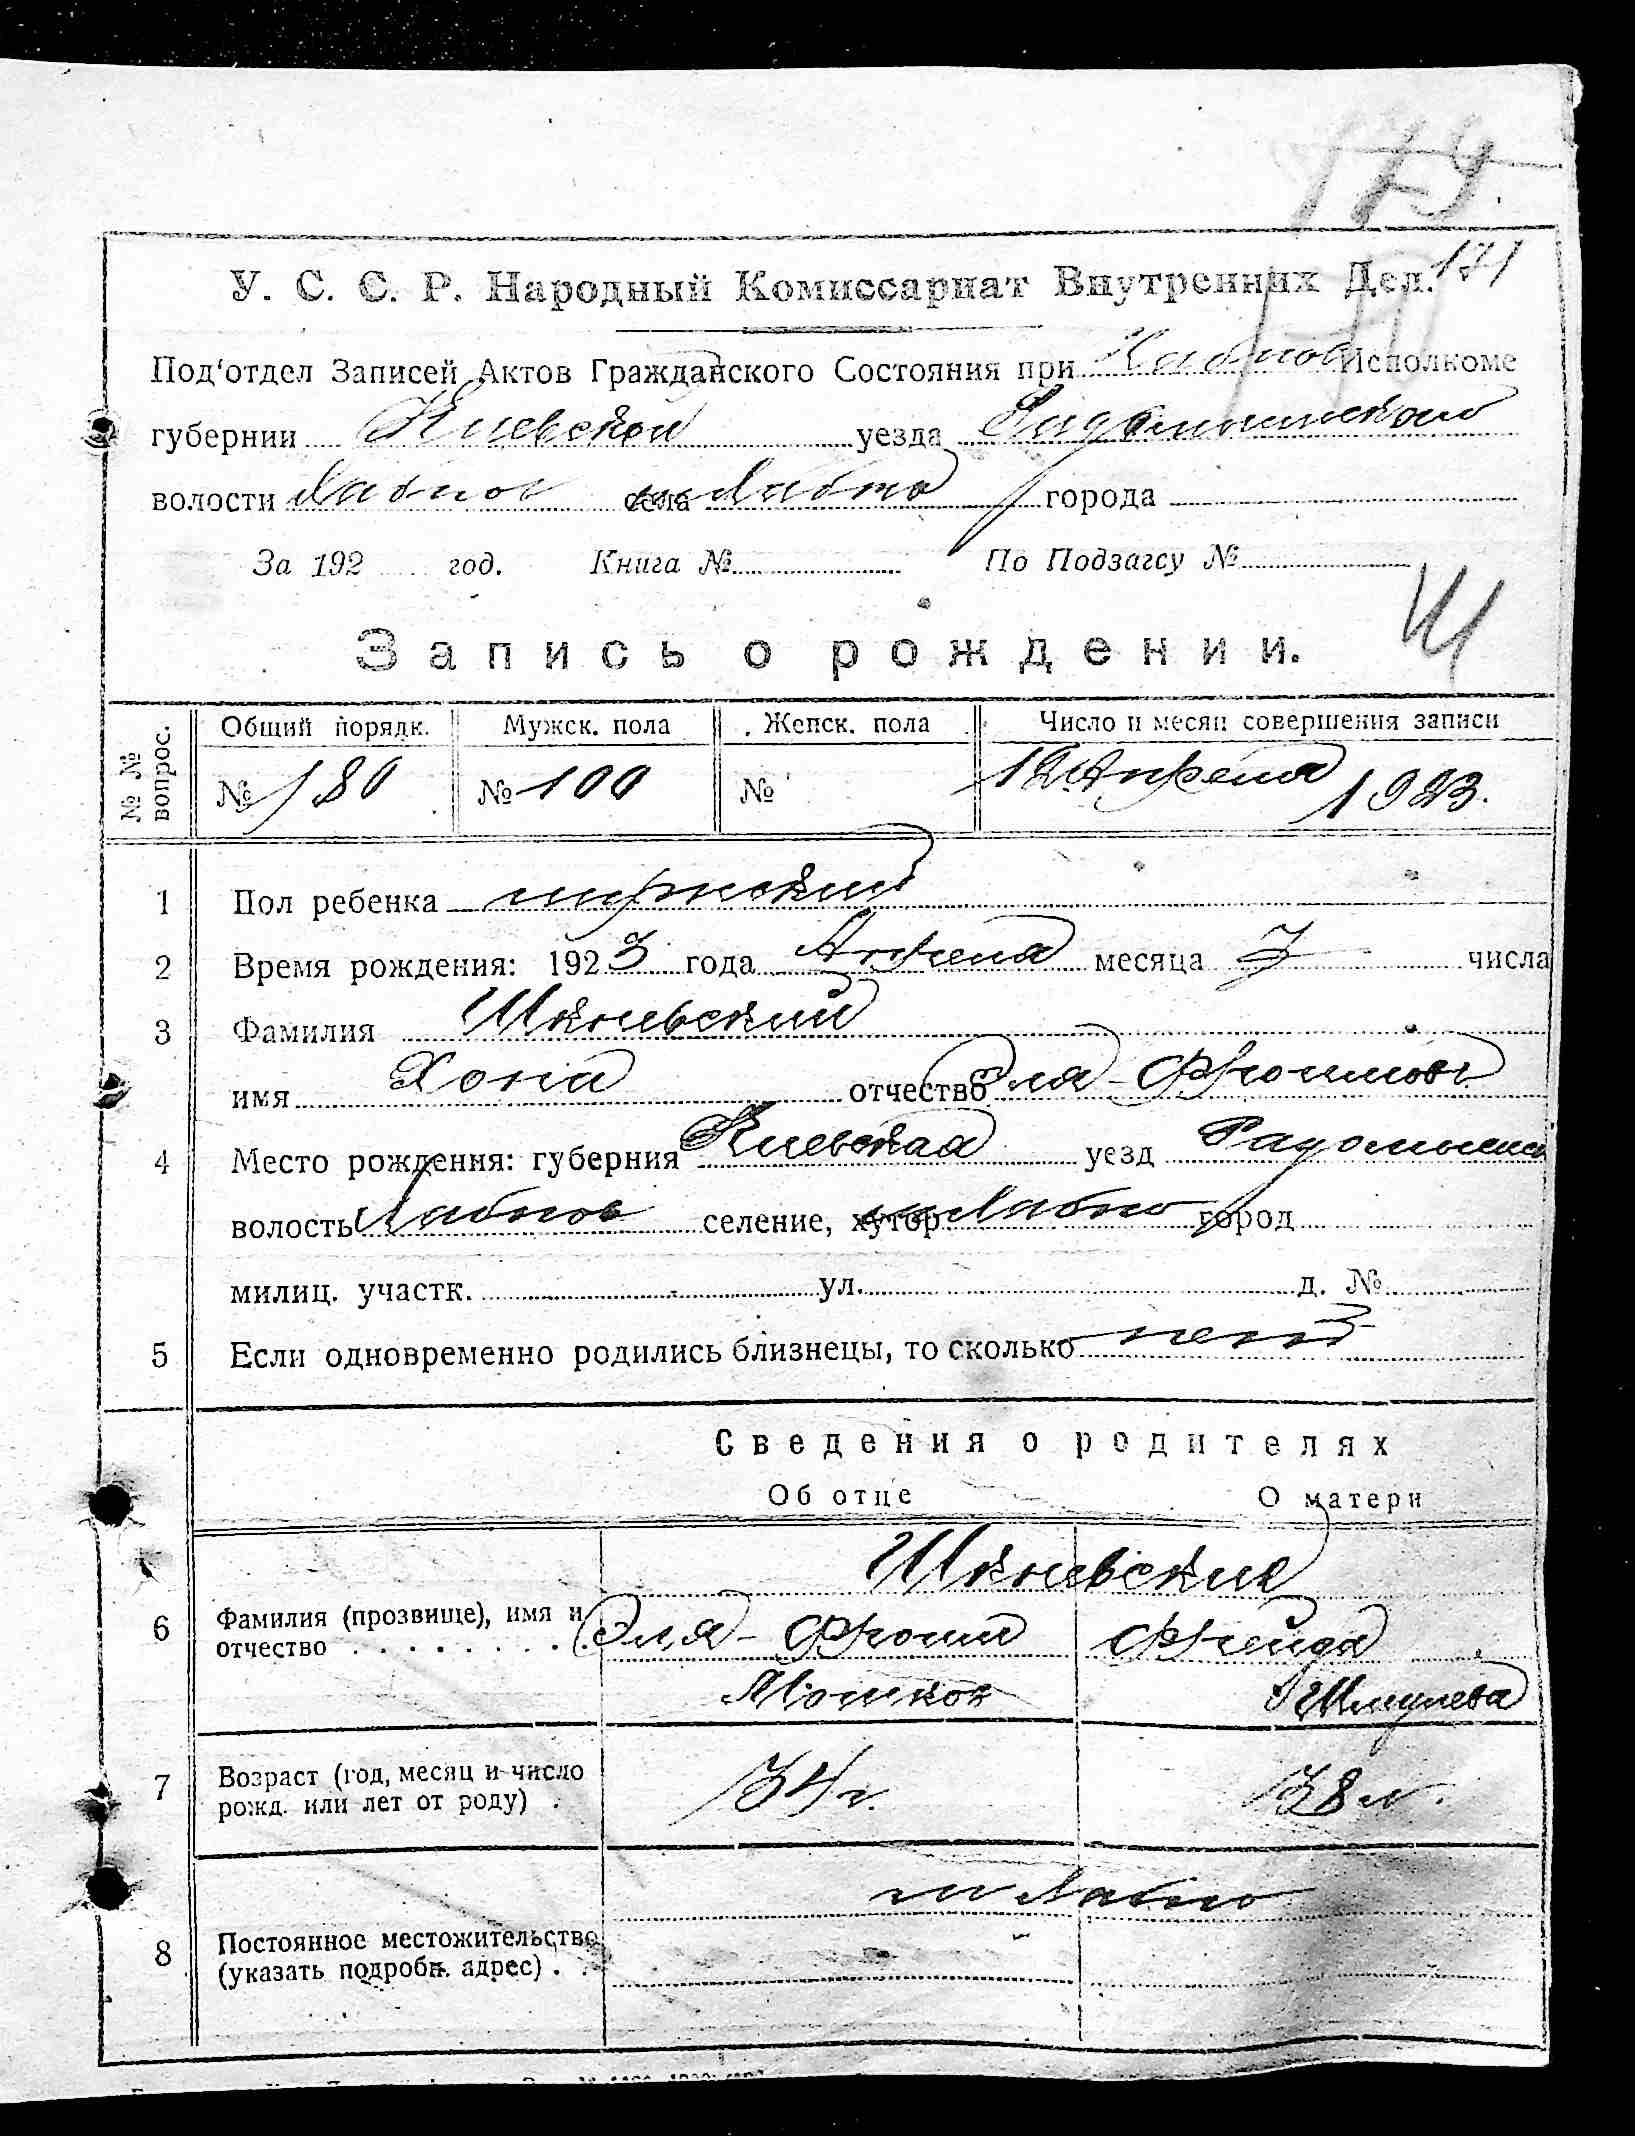 174.
У. С. С. Р. Народный Комиссариат Внутренних Дел. 171
Под'отдел Записей Актов Гражданского Состояния при Хабнов Исполкоме
губернии Киевской уезда Радомышльского
волости Хабнов села м Хабно города
За 192 год. Книга № По Подзагсу №
Ш
Запись о рождении.
№ № вопрос.
Общий порядк. Мужск. пола Женск. пола Число и месяц совершения записи
№ 180 № 100 № 12 Апреля 1923.
1 Пол ребенка мужский
2 Время рождения: 1923 года Апреля месяца 3 числа
3 Фамилия Шкневский
имя Хона отчество Эля-Фроимов
4 Место рождения: губерния Киевская уезд Радомысл
волость Хабнов селение, хутор м Хабно город
милиц. участк. ул. д. №
5 Если одновременно родились близнецы, то сколько нет
Сведения о родителях
Об отце О матери
Шкневские
6 Фамилия (прозвище), имя и Эля-Фроим Фрейда
отчество Мошков Шмулева
7 Возраст (год, месяц и число 34 г. 38 л.
рожд. или лет от роду)
м Хабно
8 Постоянное местожительство
(указать подробн. адрес)